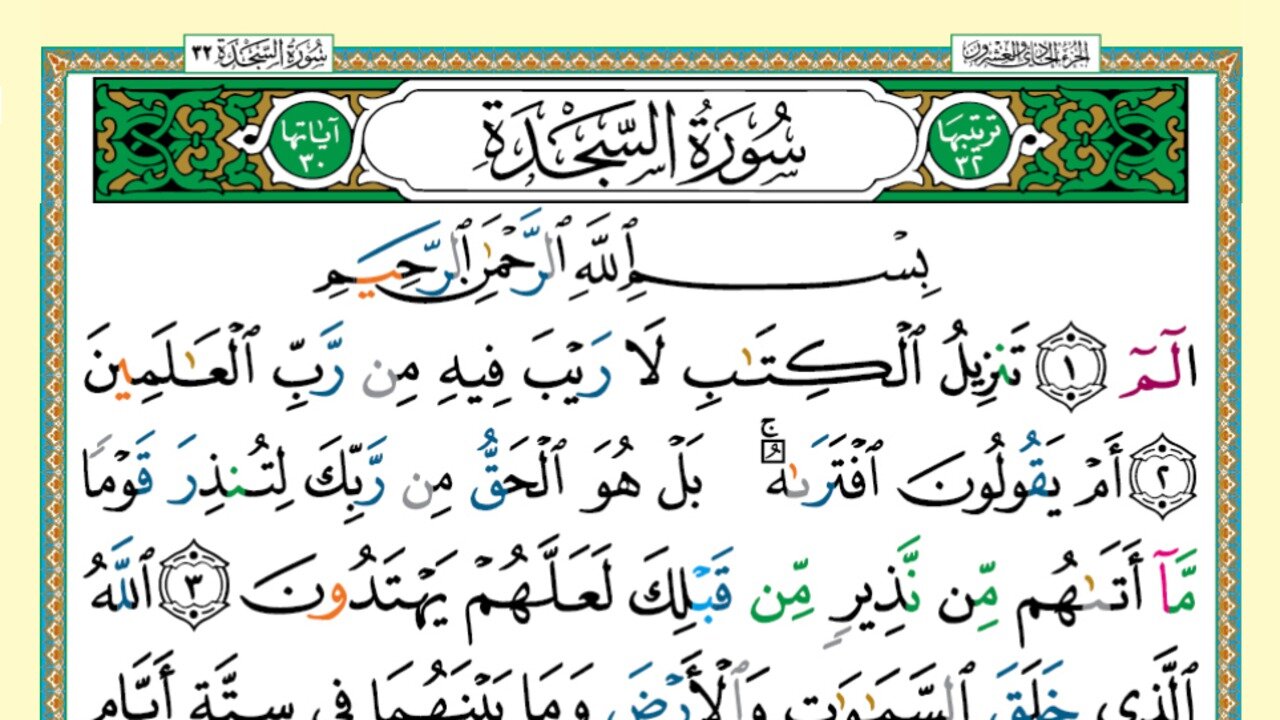 سُورَةُ السَّجْدَة ٣٢
الجزء الحادي والعشرون
ترتيبها ٣٢
سُورَةُ السَّجْدَة
آياتها ٣٠
بِسْمِ ٱللَّهِ ٱلرَّحْمَٰنِ ٱلرَّحِيمِ
الٓمٓ ١ تَنزِيلُ ٱلْكِتَٰبِ لَا رَيْبَ فِيهِ مِن رَّبِّ ٱلْعَٰلَمِينَ
٢ أَمْ يَقُولُونَ ٱفْتَرَىٰهُ ۚ بَلْ هُوَ ٱلْحَقُّ مِن رَّبِّكَ لِتُنذِرَ قَوْمًا
مَّآ أَتَىٰهُم مِّن نَّذِيرٍ مِّن قَبْلِكَ لَعَلَّهُمْ يَهْتَدُونَ ٣ ٱللَّهُ
ٱلَّذِى خَلَقَ ٱلسَّمَٰوَٰتِ وَٱلْأَرْضَ وَمَا بَيْنَهُمَا فِى سِتَّةِ أَيَّامٍ